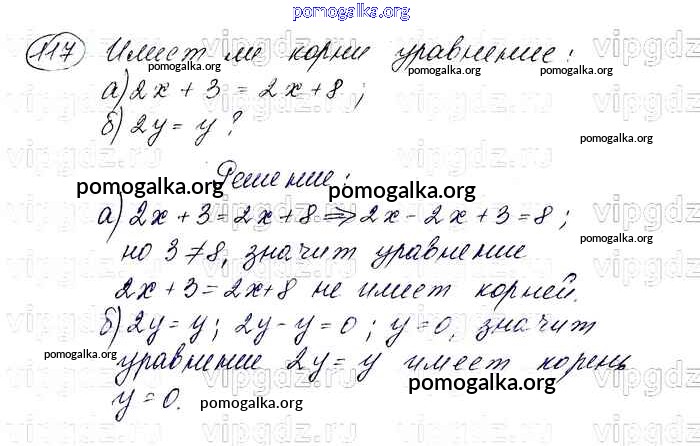 pomogalka.org
117 Имеет ли корни уравнение:
pomogalka.org pomogalka.org pomogalka.org
а) 2x + 3 = 2x + 8;
б) 2y = y?
pomogalka.org
Решение:
pomogalka.org pomogalka.org
а) 2x + 3 = 2x + 8 ⇒ 2x - 2x + 3 = 8;
pomogalka.org
но 3 ≠ 8, значит уравнение
2x + 3 = 2x + 8 не имеет корней.
б) 2y = y; 2y - y = 0; y = 0, значит
pomogalka.org
уравнение 2y = y имеет корень
pomogalka.org
y = 0.
pomogalka.org
vipgdz.ru